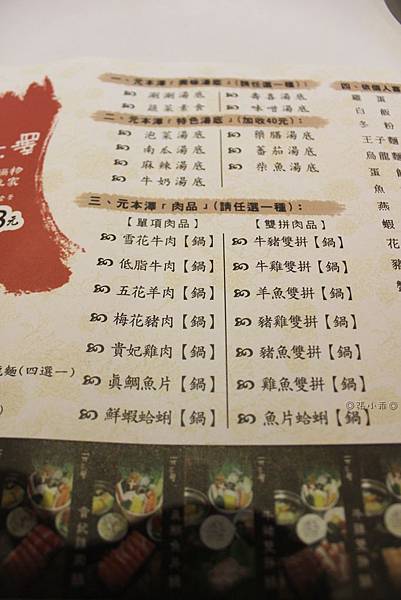 一、元本澤「興味湯底」(請任選一種):
涮涮湯底 壽喜湯底
蔬菜素食 味噌湯底
二、元本澤「特色湯底」(加收40元):
泡菜湯底 藥膳湯底
南瓜湯底 番茄湯底
麻辣湯底 柴魚湯底
牛奶湯底
三、元本澤「肉品」(請任選一種):
【單項肉品】 【雙拼肉品】
雪花牛肉【鍋】 牛豬雙拼【鍋】
低脂牛肉【鍋】 牛雞雙拼【鍋】
五花羊肉【鍋】 羊魚雙拼【鍋】
梅花豬肉【鍋】 豬雞雙拼【鍋】
貴妃雞肉【鍋】 豬魚雙拼【鍋】
真鯛魚片【鍋】 雞魚雙拼【鍋】
鮮蝦蛤蜊【鍋】 魚片蛤蜊【鍋】
四、依個人喜
雞蛋
白飯
冬粉
王子麵
烏龍麵
蛋
魚
燕
蝦
花
豬
蟹
元
麵(四選一)
◎張小乖◎